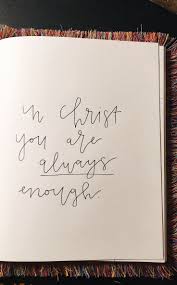 in Christ
you are
always
enough.